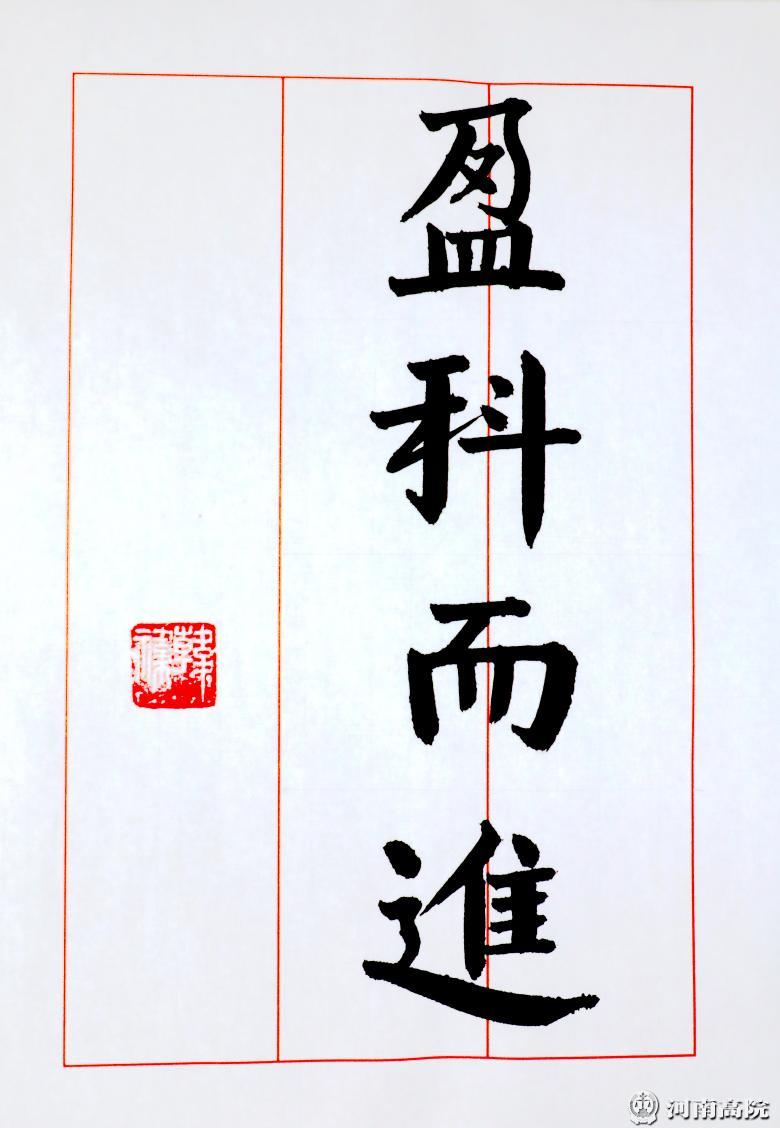 盈科而進
河南高院